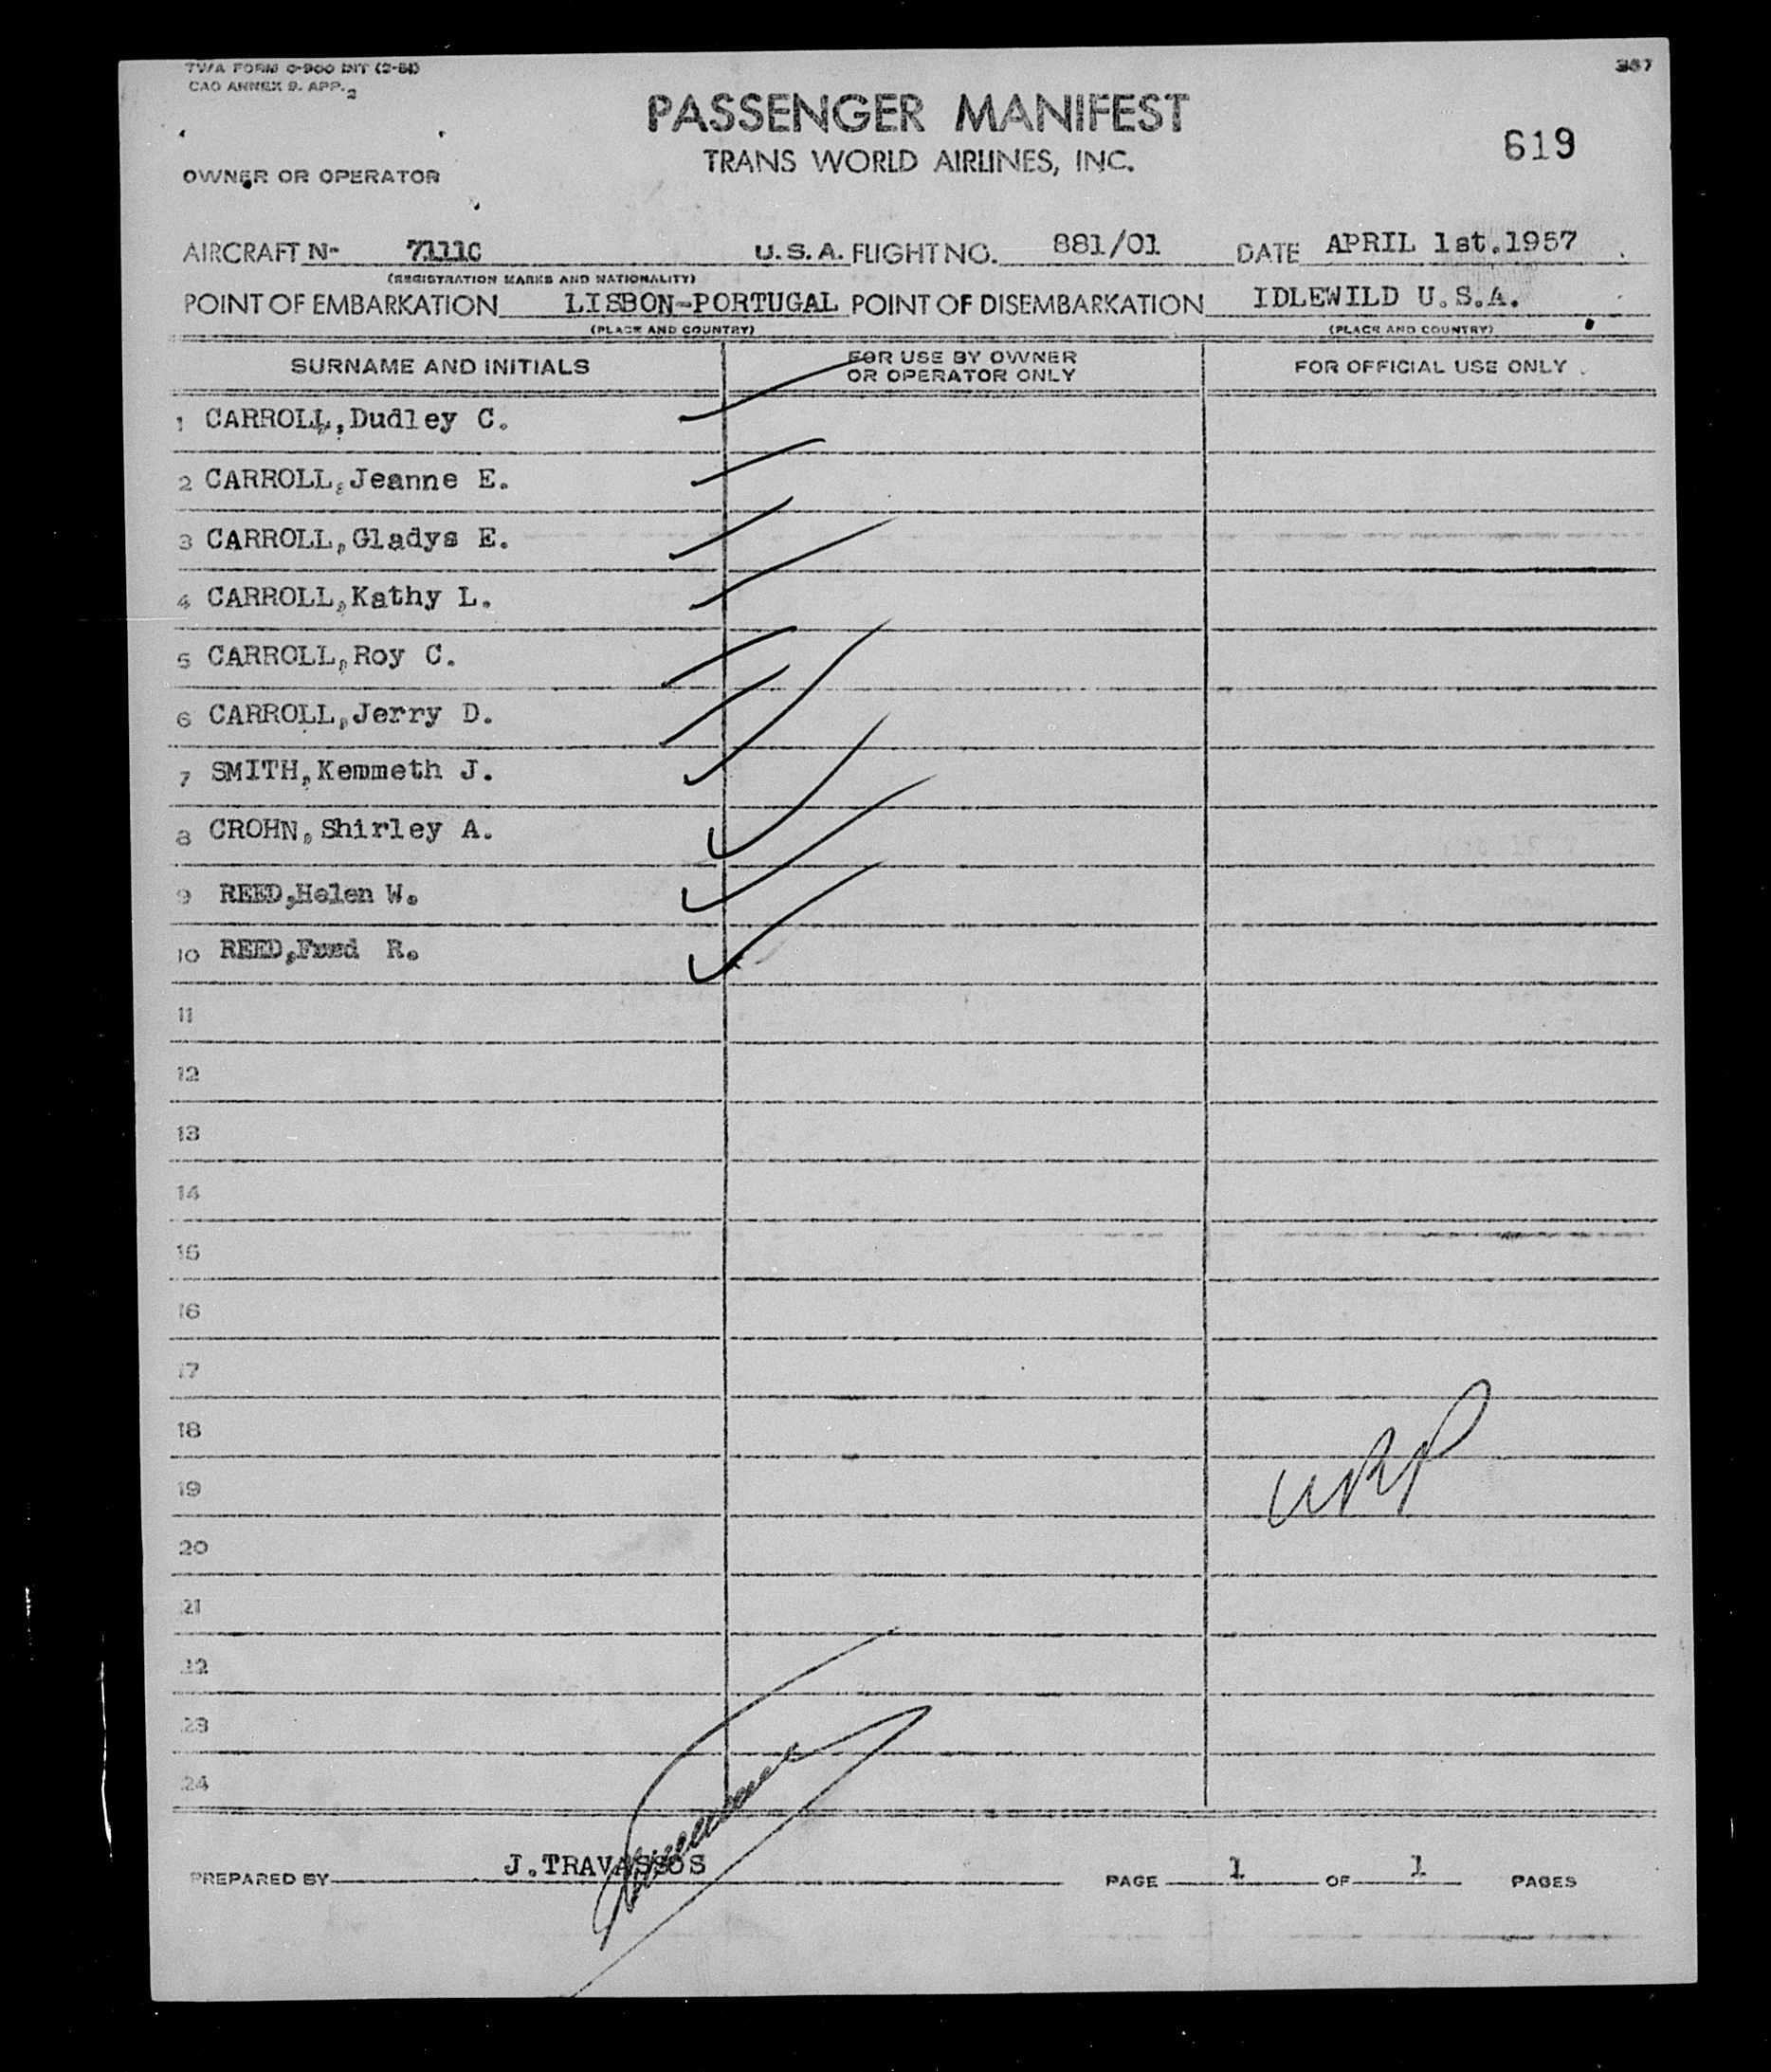 TWA FORM O-900 INT (2-51)
CAO ANNEX 9. APP. 2
367
PASSENGER MANIFEST
619
TRANS WORLD AIRLINES, INC.
OWNER OR OPERATOR
AIRCRAFT N- 7111C U.S.A. FLIGHT NO. 881/01 DATE APRIL 1st.1957
(REGISTRATION MARKS AND NATIONALITY)
POINT OF EMBARKATION LISBON-PORTUGAL POINT OF DISEMBARKATION IDLEWILD U.S.A.
(PLACE AND COUNTRY) (PLACE AND COUNTRY)
SURNAME AND INITIALS FOR USE BY OWNER OR OPERATOR ONLY FOR OFFICIAL USE ONLY
1 CARROLL,Dudley C.
2 CARROLL,Jeanne E.
3 CARROLL,Gladys E.
4 CARROLL,Kathy L.
5 CARROLL,Roy C.
6 CARROLL,Jerry D.
7 SMITH,Kemmeth J.
8 CROHN,Shirley A.
9 REED,Helen W.
10 REED, R.
11
12
13
14
15
16
17
18
19
20
21
22
23
24
PREPARED BY J.TRAVASSOS PAGE 1 OF 1 PAGES